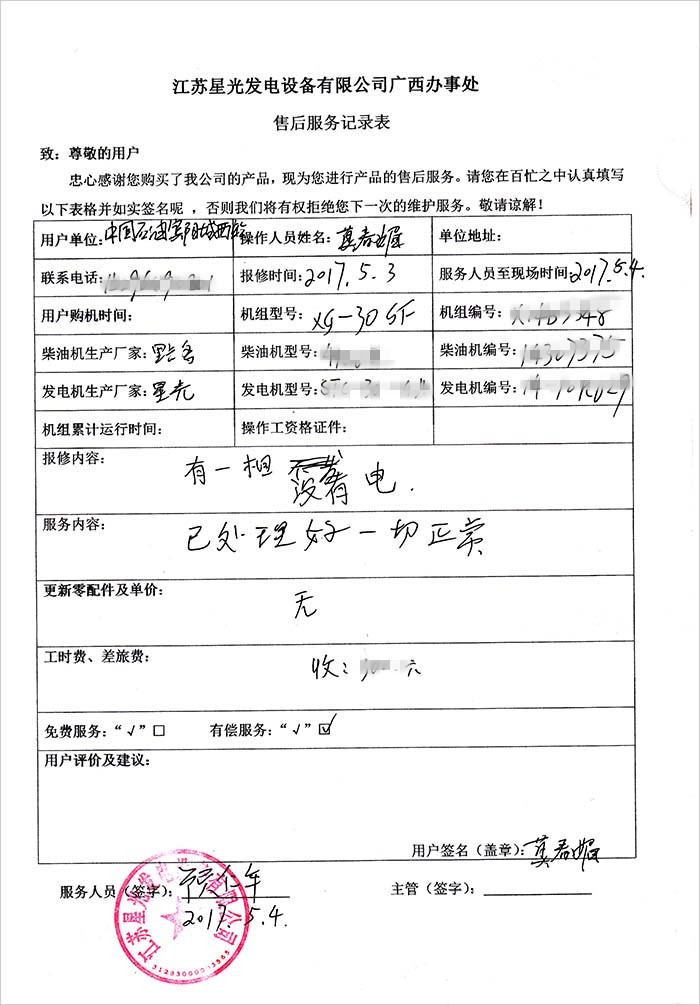 江苏星光发电设备有限公司广西办事处
售后服务记录表
致：尊敬的用户
忠心感谢您购买了我公司的产品，现为您进行产品的售后服务。请您在百忙之中认真填写
以下表格并如实签名呢，否则我们将有权拒绝您下一次的维护服务。敬请谅解！
用户单位：中国石油宾阳城西站 操作人员姓名：莫春媚 单位地址：
联系电话： 报修时间：2017.5.3 服务人员至现场时间：2017.5.4.
用户购机时间： 机组型号：XG-30GF 机组编号：
柴油机生产厂家： 柴油机型号： 柴油机编号：
发电机生产厂家：星光 发电机型号： 发电机编号：
机组累计运行时间： 操作工资格证件：
报修内容：
有一相没有电.
服务内容：
已处理好一切正常
更新零配件及单价：
无
工时费、差旅费：
收： 元
免费服务：“√”□ 有偿服务：“√”☑
用户评价及建议：
用户签名（盖章）：莫春媚
服务人员（签字）： 主管（签字）：
2017.5.4.
江苏星光发电设备有限公司